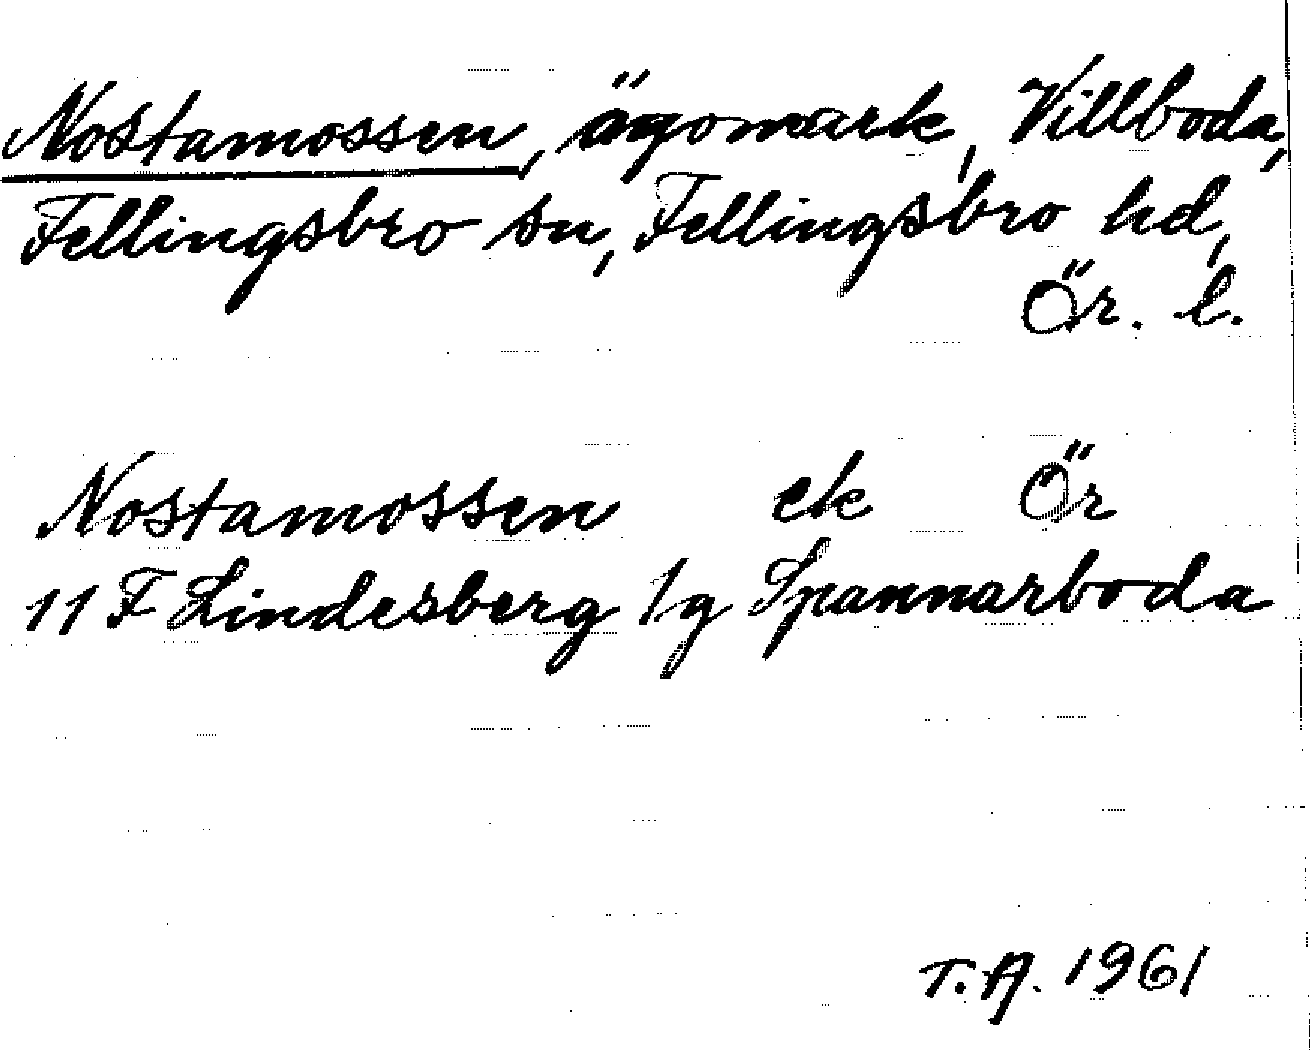 Nostamossen, ägomark, Villboda,
Fellingsbro sn, Fellingsbro hd,
Ör. l.
Nostamossen ek Ör
11 F Lindesberg 1g Spannarboda
T.A. 1961